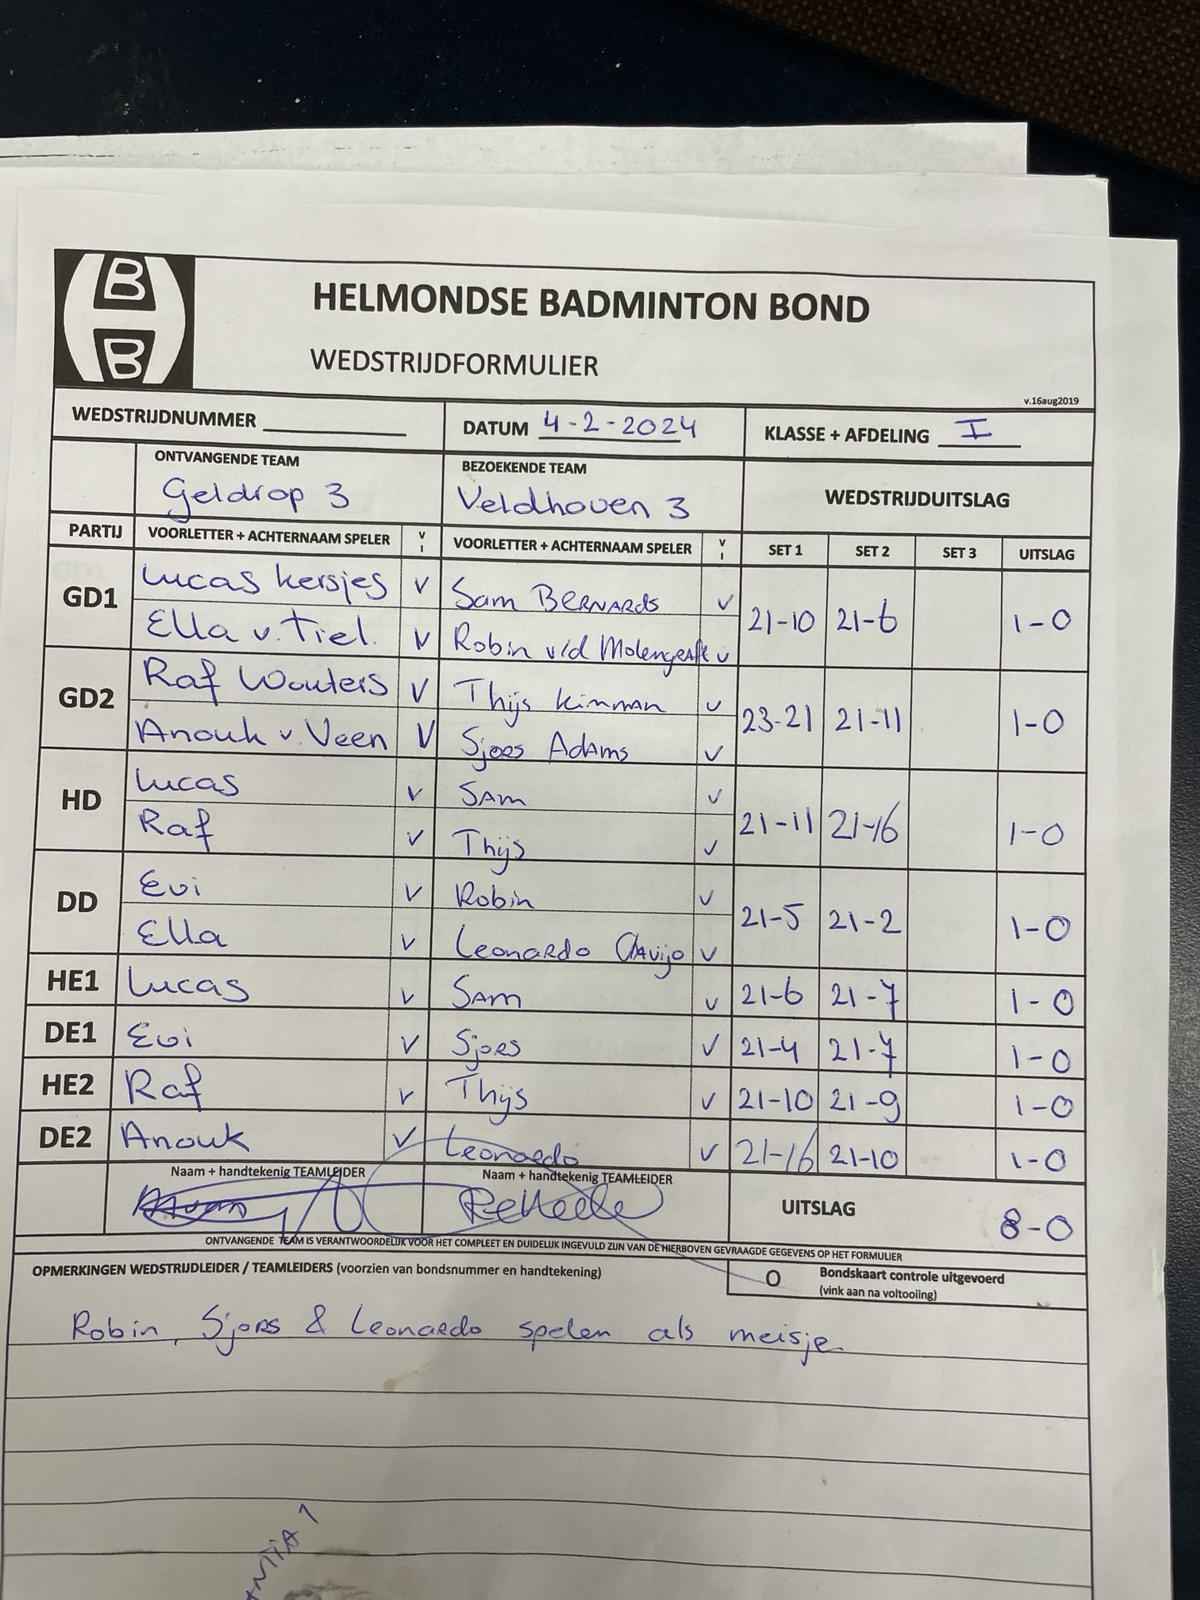 B
B
HELMONDSE BADMINTON BOND
WEDSTRIJDFORMULIER
v.16aug2019
WEDSTRIJDNUMMER DATUM 4-2-2024 KLASSE + AFDELING I
ONTVANGENDE TEAM BEZOEKENDE TEAM
Geldrop 3 Veldhoven 3 WEDSTRIJDUITSLAG
PARTIJ VOORLETTER + ACHTERNAAM SPELER V I VOORLETTER + ACHTERNAAM SPELER V I SET 1 SET 2 SET 3 UITSLAG
GD1 Lucas Kersjes V Sam BERNARDS V 21-10 21-6 1-0
Ella v. Tiel. V Robin v/d V
GD2 Raf Wouters V Thijs Kinman V 23-21 21-11 1-0
Anouk v. Veen V Sjors Adams V
HD Lucas V SAM V 21-11 21-16 1-0
Raf V Thijs V
DD Evi V Robin V 21-5 21-2 1-0
Ella V Leonardo Clavijo V
HE1 Lucas V SAM V 21-6 21-7 1-0
DE1 Evi V Sjors V 21-4 21-7 1-0
HE2 Raf V Thijs V 21-10 21-9 1-0
DE2 Anouk V Leonardo V 21-16 21-10 1-0
Naam + handtekenig TEAMLEIDER Naam + handtekenig TEAMLEIDER
UITSLAG 8-0
ONTVANGENDE TEAM IS VERANTWOORDELIJK VOOR HET COMPLEET EN DUIDELIJK INGEVULD ZIJN VAN DE HIERBOVEN GEVRAAGDE GEGEVENS OP HET FORMULIER
OPMERKINGEN WEDSTRIJDLEIDER / TEAMLEIDERS (voorzien van bondsnummer en handtekening) O Bondskaart controle uitgevoerd
(vink aan na voltooiing)
Robin, Sjors & Leonardo spelen als meisje